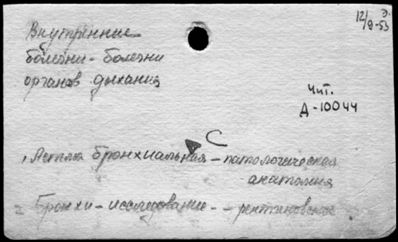 12/ Э.
9-53
Внутренние
болезни - болезни
органов дыхания
Чит.
Д-10044
С
1 Астма бронхиальная - патологическая
анатомия
2 Бронхи - исследование - рентгеновское